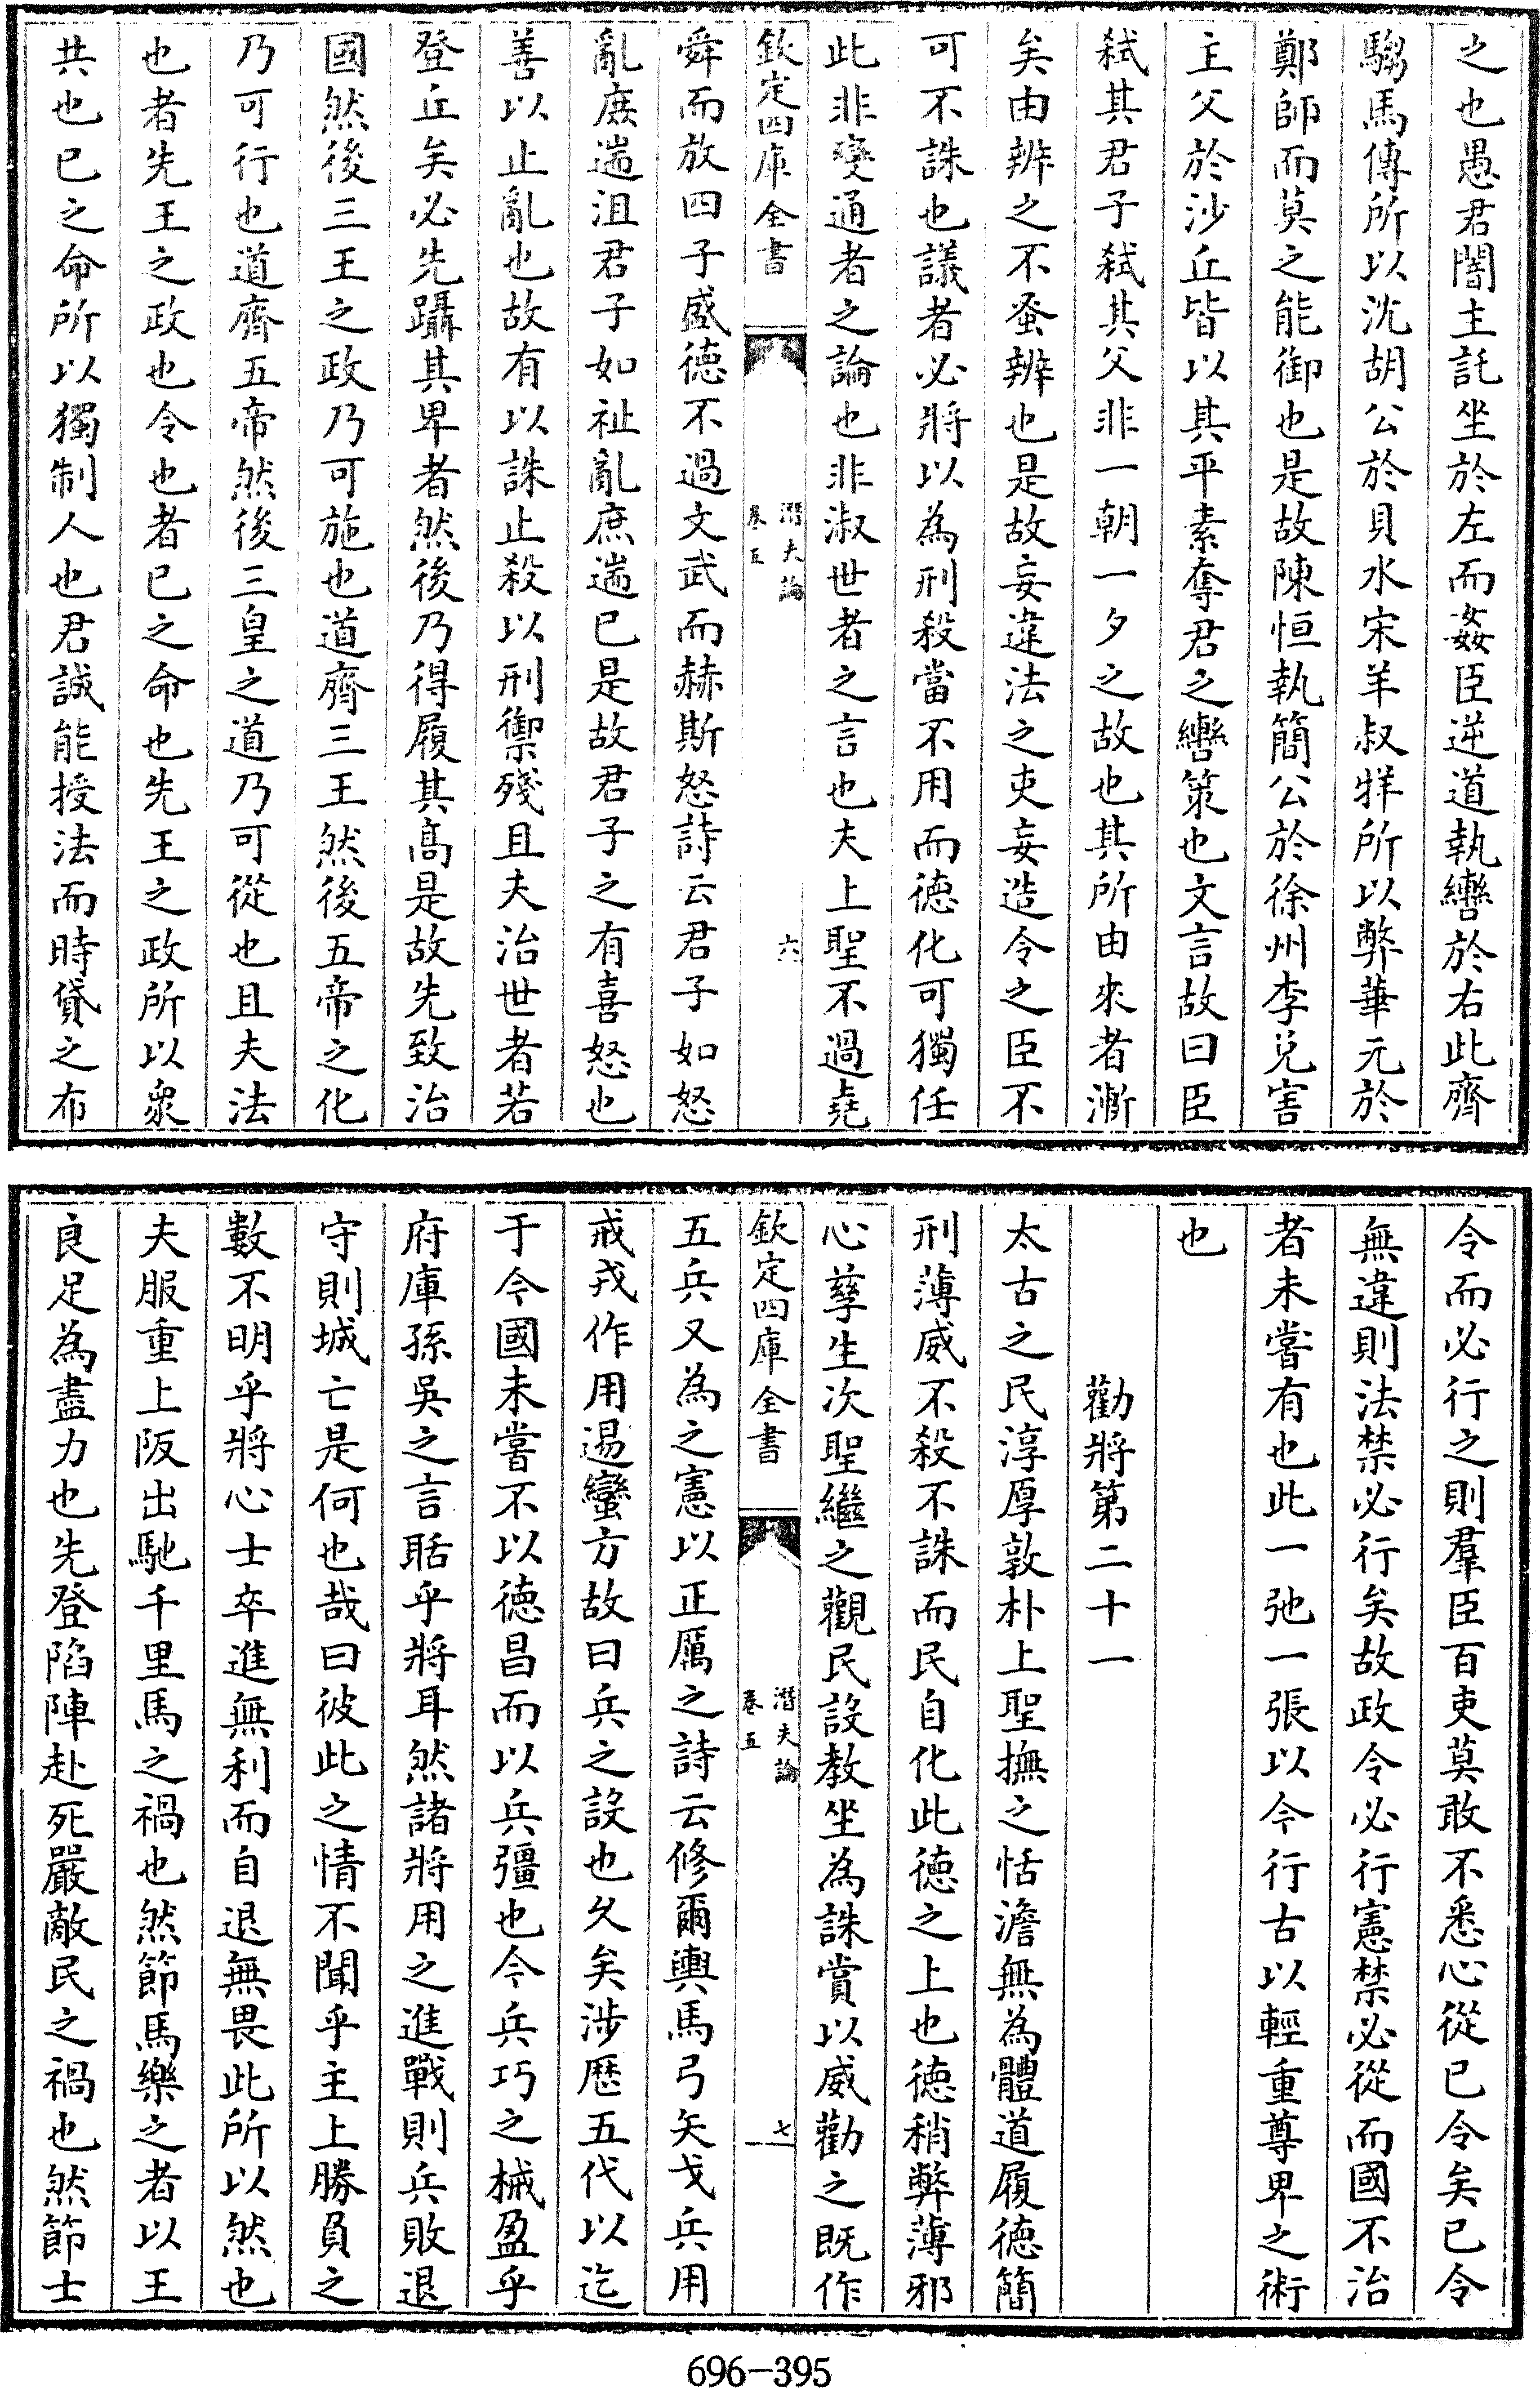 之也愚君闇主託坐於左而姦臣逆道執轡於右此齊
騶馬傳所以沈胡公於貝水宋羊叔牂所以弊華元於
鄭師而莫之能御也是故陳恒執簡公於徐州李兌害
主父於沙丘皆以其平素奪君之轡策也文言故曰臣
弑其君子弑其父非一朝一夕之故也其所由來者漸
矣由辨之不蚤辨也是故妄違法之吏妄造令之臣不
可不誅也議者必將以為刑殺當不用而徳化可獨任
此非變通者之論也非淑世者之言也夫上聖不過堯
欽定四庫全書
潛夫論
卷五
六
舜而放四子盛徳不過文武而赫斯怒詩云君子如怒
亂庶遄沮君子如祉亂庶遄已是故君子之有喜怒也
善以止亂也故有以誅止殺以刑禦殘且夫治世者若
登丘矣必先躡其卑者然後乃得履其髙是故先致治
國然後三王之政乃可施也道齊三王然後五帝之化
乃可行也道齊五帝然後三皇之道乃可從也且夫法
也者先王之政也令也者已之命也先王之政所以衆
共也已之命所以獨制人也君誠能授法而時貸之布
令而必行之則羣臣百吏莫敢不悉心從已令矣已令
無違則法禁必行矣故政令必行憲禁必從而國不治
者未嘗有也此一弛一張以今行古以輕重尊卑之術
也
勸將第二十一
太古之民淳厚敦朴上聖撫之恬澹無為體道履徳簡
刑薄威不殺不誅而民自化此徳之上也徳稍弊薄邪
心孳生次聖繼之觀民設教坐為誅賞以威勸之既作
欽定四庫全書
潛夫論
卷五
七
五兵又為之憲以正厲之詩云修爾輿馬弓矢戈兵用
戒戎作用逷蠻方故曰兵之設也久矣涉歴五代以迄
于今國未嘗不以徳昌而以兵彊也今兵巧之械盈乎
府庫孫吳之言聒乎將耳然諸將用之進戰則兵敗退
守則城亡是何也哉曰彼此之情不聞乎主上勝負之
數不明乎將心士卒進無利而自退無畏此所以然也
夫服重上阪出馳千里馬之禍也然節馬樂之者以王
良足為盡力也先登陷陣赴死嚴敵民之禍也然節士
696-395